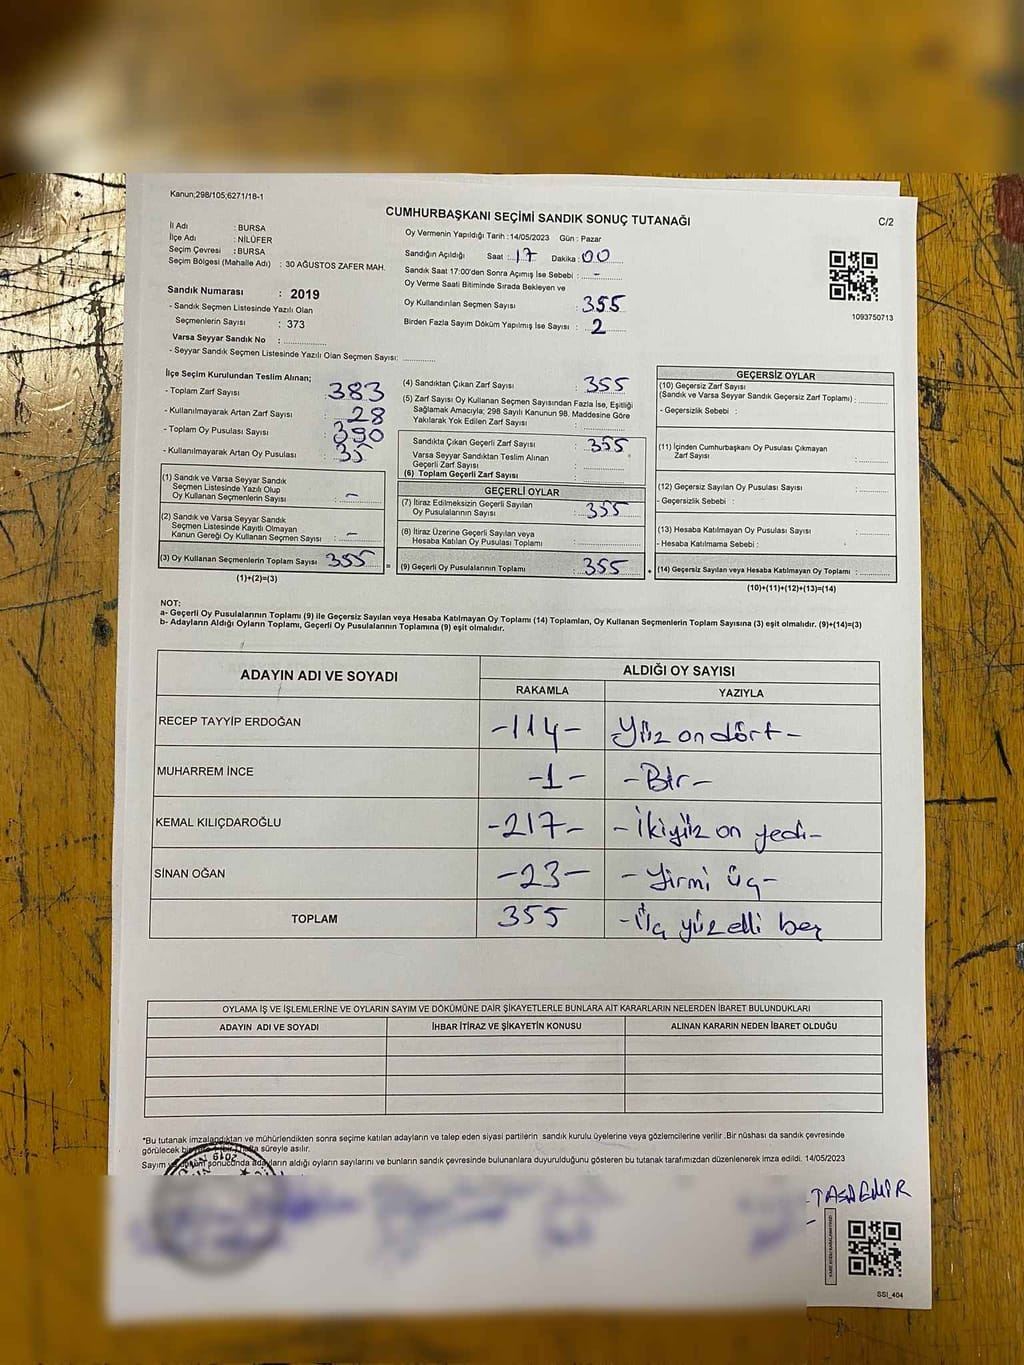 Kanun;298/105;6271/18-1
CUMHURBAŞKANI SEÇİMİ SANDIK SONUÇ TUTANAĞI
C/2
İl Adı : BURSA
İlçe Adı : NİLÜFER
Seçim Çevresi : BURSA
Seçim Bölgesi (Mahalle Adı) : 30 AĞUSTOS ZAFER MAH.
Sandık Numarası : 2019
- Sandık Seçmen Listesinde Yazılı Olan
Seçmenlerin Sayısı : 373
Varsa Seyyar Sandık No : ...............
- Seyyar Sandık Seçmen Listesinde Yazılı Olan Seçmen Sayısı: ............
Oy Vermenin Yapıldığı Tarih : 14/05/2023 Gün : Pazar
Sandığın Açıldığı Saat : 17 Dakika : 00
Sandık Saat 17:00'den Sonra Açımış İse Sebebi : -
Oy Verme Saati Bitiminde Sırada Bekleyen ve
Oy Kullandırılan Seçmen Sayısı : 355
Birden Fazla Sayım Döküm Yapılmış İse Sayısı : 2
1093750713
İlçe Seçim Kurulundan Teslim Alınan;
- Toplam Zarf Sayısı : 383
- Kullanılmayarak Artan Zarf Sayısı : 28
- Toplam Oy Pusulası Sayısı : 390
- Kullanılmayarak Artan Oy Pusulası : 35
(1) Sandık ve Varsa Seyyar Sandık
Seçmen Listesinde Yazılı Olup
Oy Kullanan Seçmenlerin Sayısı : -
(2) Sandık ve Varsa Seyyar Sandık
Seçmen Listesinde Kayıtlı Olmayan
Kanun Gereği Oy Kullanan Seçmen Sayısı : -
(3) Oy Kullanan Seçmenlerin Toplam Sayısı 355 =
(1)+(2)=(3)
(4) Sandıktan Çıkan Zarf Sayısı : 355
(5) Zarf Sayısı Oy Kullanan Seçmen Sayısından Fazla İse, Eşitliği
Sağlamak Amacıyla; 298 Sayılı Kanunun 98. Maddesine Göre
Yakılarak Yok Edilen Zarf Sayısı :
Sandıkta Çıkan Geçerli Zarf Sayısı : 355
Varsa Seyyar Sandıktan Teslim Alınan
Geçerli Zarf Sayısı :
(6) Toplam Geçerli Zarf Sayısı
GEÇERLİ OYLAR
(7) İtiraz Edilmeksizin Geçerli Sayılan
Oy Pusulalarının Sayısı : 355
(8) İtiraz Üzerine Geçerli Sayılan veya
Hesaba Katılan Oy Pusulası Toplamı :
(9) Geçerli Oy Pusulalarının Toplamı : 355 +
GEÇERSİZ OYLAR
(10) Geçersiz Zarf Sayısı
(Sandık ve Varsa Seyyar Sandık Geçersiz Zarf Toplamı) :
- Geçersizlik Sebebi :
(11) İçinden Cumhurbaşkanı Oy Pusulası Çıkmayan
Zarf Sayısı :
(12) Geçersiz Sayılan Oy Pusulası Sayısı :
- Geçersizlik Sebebi :
(13) Hesaba Katılmayan Oy Pusulası Sayısı :
- Hesaba Katılmama Sebebi :
(14) Geçersiz Sayılan veya Hesaba Katılmayan Oy Toplamı :
(10)+(11)+(12)+(13)=(14)
NOT:
a- Geçerli Oy Pusulalarının Toplamı (9) ile Geçersiz Sayılan veya Hesaba Katılmayan Oy Toplamı (14) Toplamları, Oy Kullanan Seçmenlerin Toplam Sayısına (3) eşit olmalıdır. (9)+(14)=(3)
b- Adayların Aldığı Oyların Toplamı, Geçerli Oy Pusulalarının Toplamına (9) eşit olmalıdır.
ADAYIN ADI VE SOYADI ALDIĞI OY SAYISI
RAKAMLA YAZIYLA
RECEP TAYYİP ERDOĞAN -114- Yüz on dört -
MUHARREM İNCE -1- -Bir-
KEMAL KILIÇDAROĞLU -217- -İkiyüz on yedi-
SİNAN OĞAN -23- -Yirmi üç-
TOPLAM 355 -Üç yüz elli beş
OYLAMA İŞ VE İŞLEMLERİNE VE OYLARIN SAYIM VE DÖKÜMÜNE DAİR ŞİKAYETLERLE BUNLARA AİT KARARLARIN NELERDEN İBARET BULUNDUKLARI
ADAYIN ADI VE SOYADI İHBAR İTİRAZ VE ŞİKAYETİN KONUSU ALINAN KARARIN NEDEN İBARET OLDUĞU
*Bu tutanak imzalandıktan ve mühürlendikten sonra seçime katılan adayların ve talep eden siyasi partilerin sandık kurulu üyelerine veya gözlemcilerine verilir .Bir nüshası da sandık çevresinde
görülecek bir süreyle asılır.
Sayım sonucunda adayların aldığı oyların sayılarını ve bunların sandık çevresinde bulunanlara duyurulduğunu gösteren bu tutanak tarafımızdan düzenlenerek imza edildi. 14/05/2023
2019
TAŞDEMİR
SSI_404